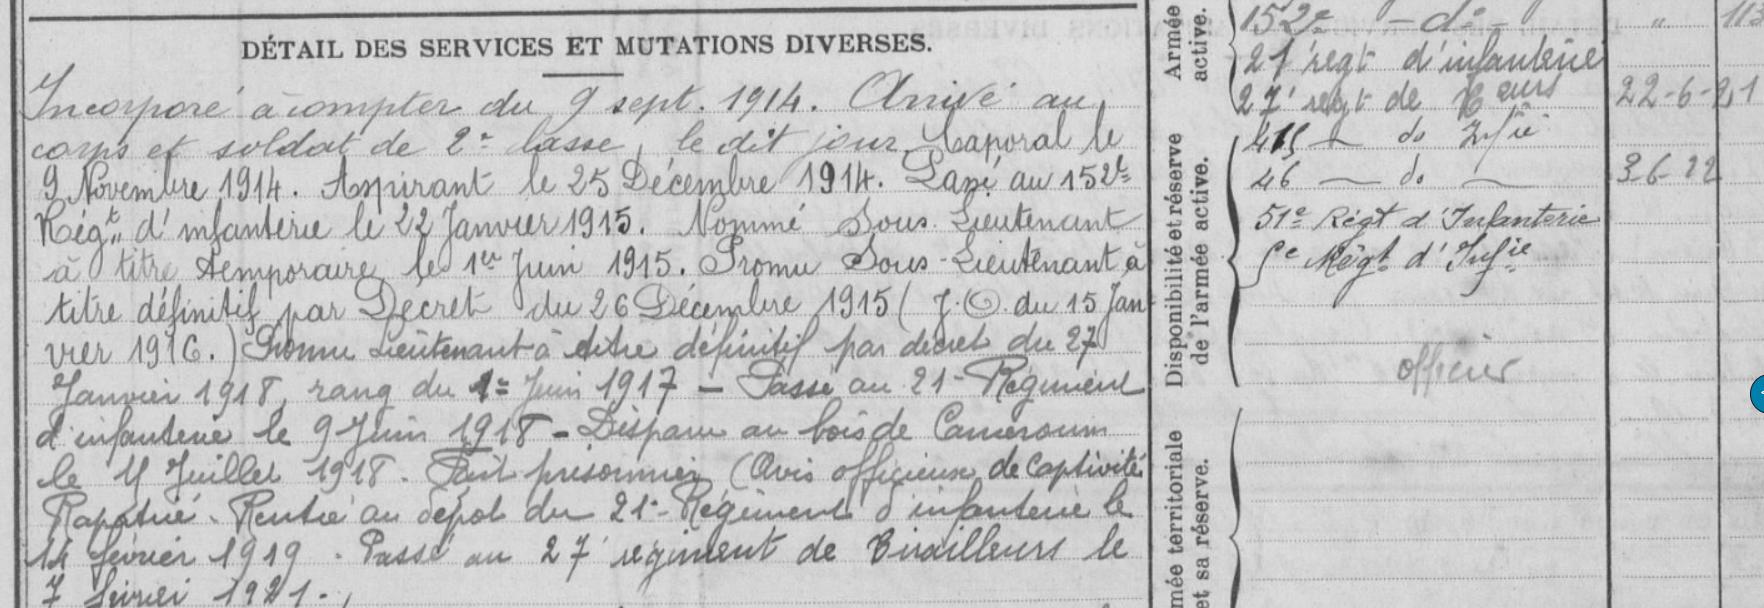 DÉTAIL DES SERVICES ET MUTATIONS DIVERSES.
Incorporé à compter du 9 sept. 1914. Arrivé au
corps et soldat de 2e classe, le dit jour. Caporal le
9 Novembre 1914. Aspirant le 25 Décembre 1914. Passé au 152e
Régt. d'infanterie le 22 Janvier 1915. Nommé Sous-Lieutenant
à titre temporaire le 1er Juin 1915. Promu Sous-Lieutenant à
titre définitif par Decret du 26 Décembre 1915 (J.O. du 15 Jan-
vier 1916.) Promu Lieutenant à titre définitif par décret du 27
Janvier 1918, rang du 1e Juin 1917 — Passé au 21e Régiment
d'infanterie le 9 Juin 1918 — Disparu au bois de Cameroun
le Juillet 1918. Fait prisonnier (Avis officieux de captivité
Rapatrié. Rentré au dépôt du 21e Régiment d'infanterie le
11 février 1919. Passé au 27e régiment de Tirailleurs le
7 février 1921.
Armée
active.
152e — do —
21e régt d'infanterie
27e regt de 22-6-21
do Infie
46 — do — 3-6-22
51e Régt d'Infanterie
Régt d'Infie
Disponibilité et réserve
de l'armée active.
officier
mée territoriale
et sa réserve.